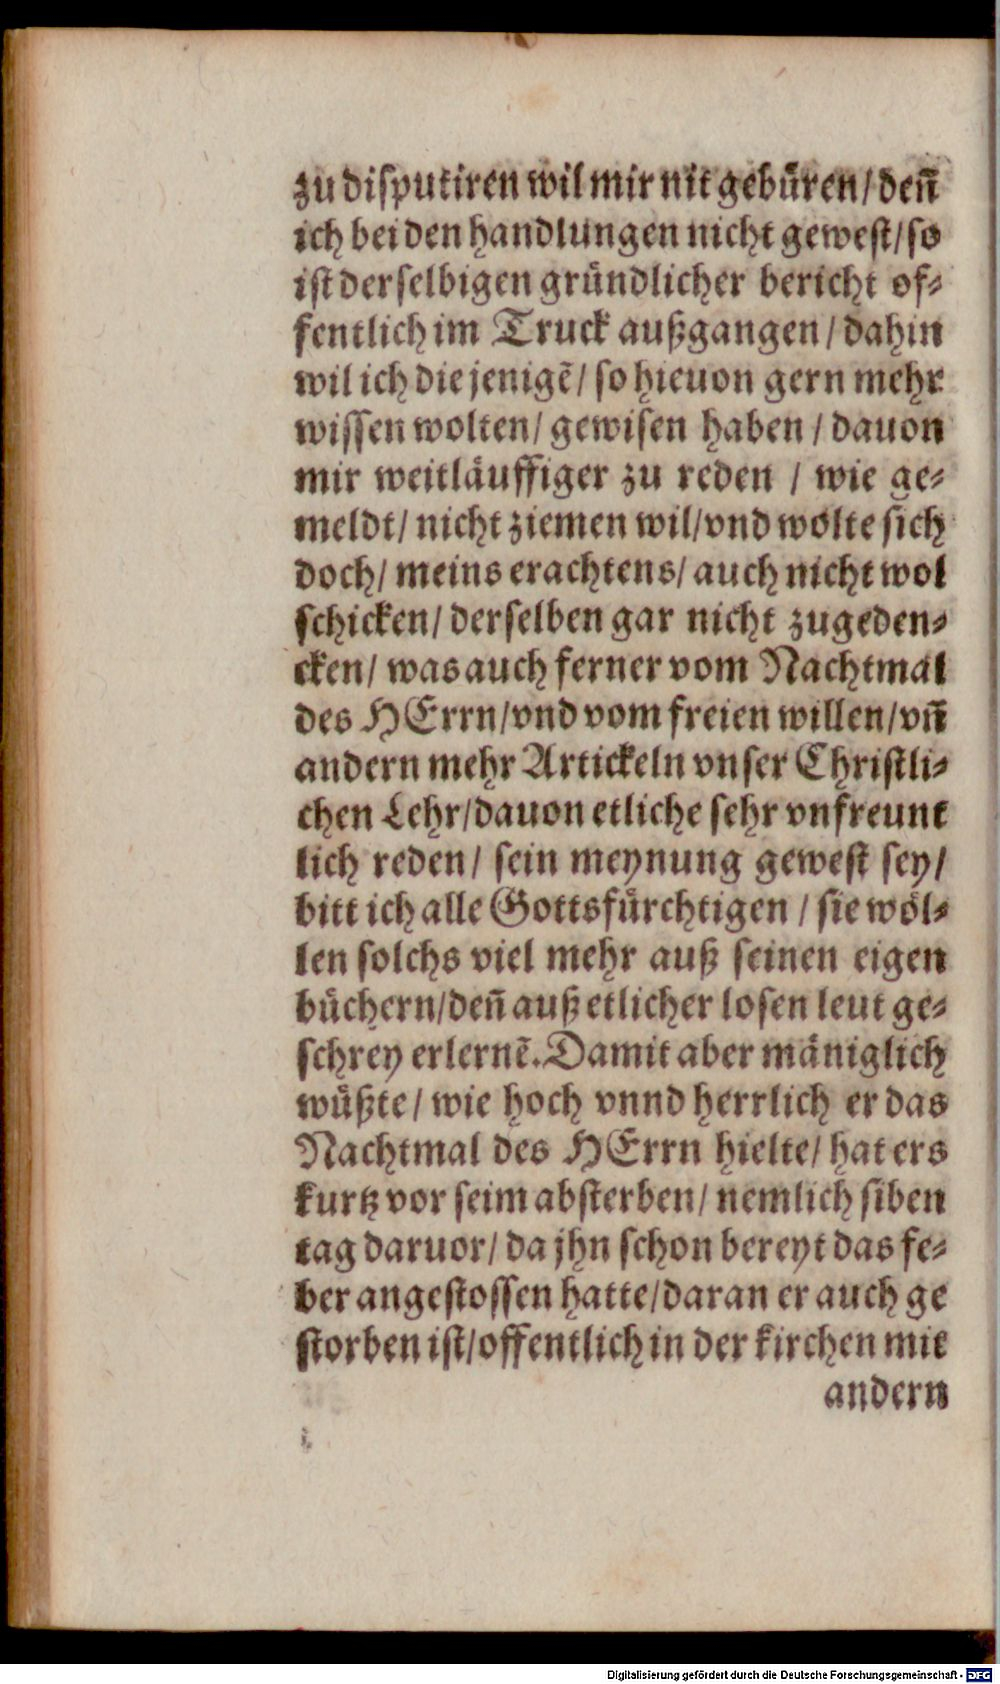 zu disputiren wil mir nit gebüren/ deñ
ich bei den handlungen nicht gewest/ so
ist derselbigen gründlicher bericht of-
fentlich im Truck außgangen/ dahin
wil ich die jenigẽ/ so hieuon gern mehr
wissen wolten/ gewisen haben/ dauon
mir weitläuffiger zu reden / wie ge-
meldt/ nicht ziemen wil/ vnd wölte sich
doch/ meins erachtens/ auch nicht wol
schicken/ derselben gar nicht zugeden-
cken/ was auch ferner vom Nachtmal
des HErrn/ vnd vom freien willen/ vñ
andern mehr Artickeln vnser Christli-
chen Lehr/ dauon etliche sehr vnfreunt
lich reden/ sein meynung gewest sey/
bitt ich alle Gottsfürchtigen / sie wöl-
len solchs viel mehr auß seinen eigen
büchern/ deñ auß etlicher losen leut ge-
schrey erlernẽ. Damit aber mäniglich
wüßte/ wie hoch vnnd herrlich er das
Nachtmal des HErrn hielte/ hat ers
kurtz vor seim absterben/ nemlich siben
tag daruor/ da jhn schon bereyt das fe-
ber angestossen hatte/ daran er auch ge
storben ist/ offentlich in der kirchen mit
andern
Digitalisierung gefördert durch die Deutsche Forschungsgemeinschaft - DFG